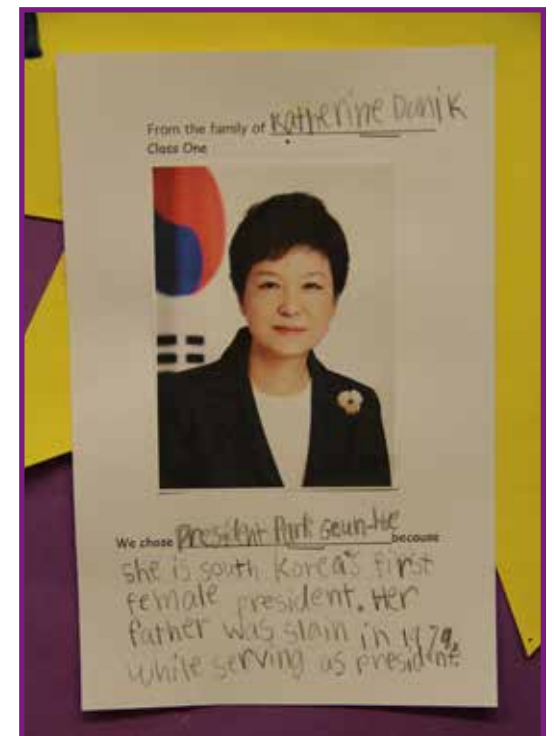 From the family of Katherine Danik
Class One
We chose President Park Geun-He because
she is south Korea's first
female president. Her
father was slain in 1979,
while serving as president